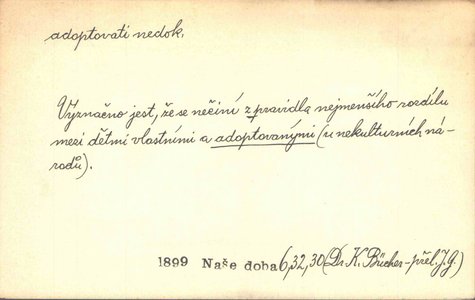 adoptovati nedok.
Význačno jest, že se nečiní z pravidla nejmenšího rozdílu
mezi dětmi vlastními a adoptovanými (u nekulturních ná-
rodů).
1899 Naše doba 6,32,30 (Dr. K. Bücher-přel. J. G.)